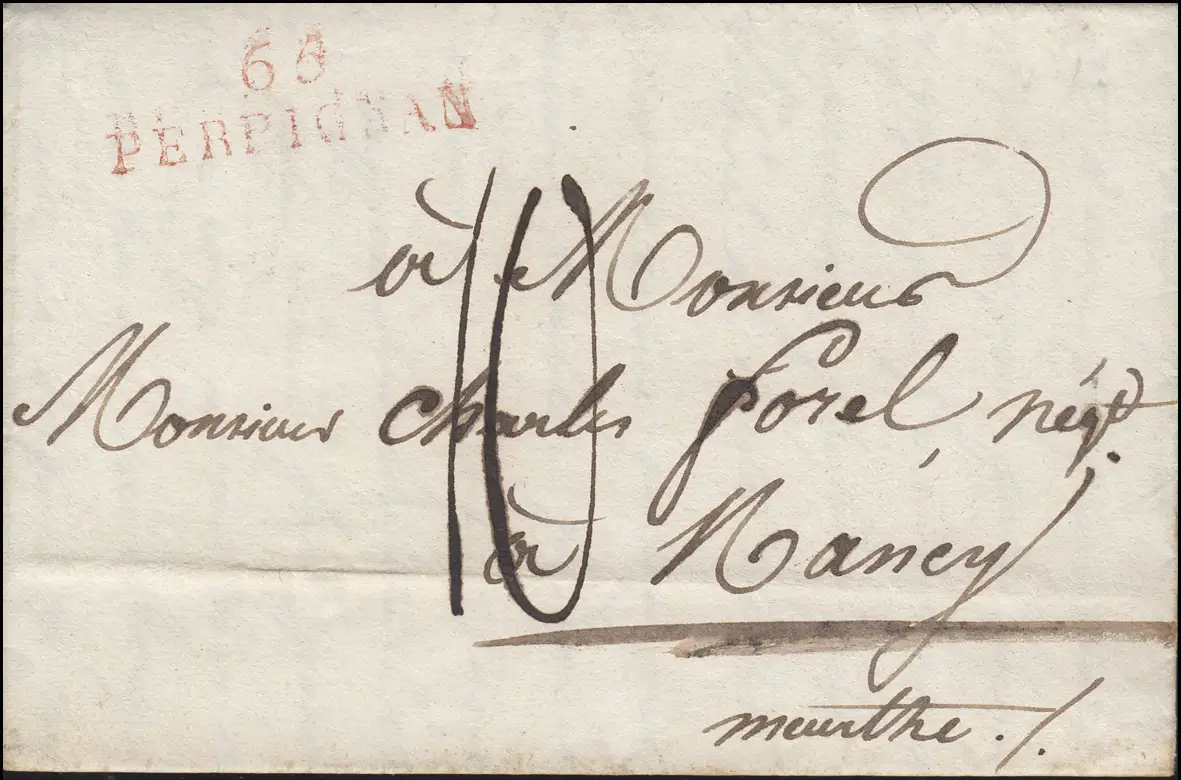 65
PERPIGNAN
10
à Monsieur
Monsieur charles forel négt.
à Nancy
meurthe ./.